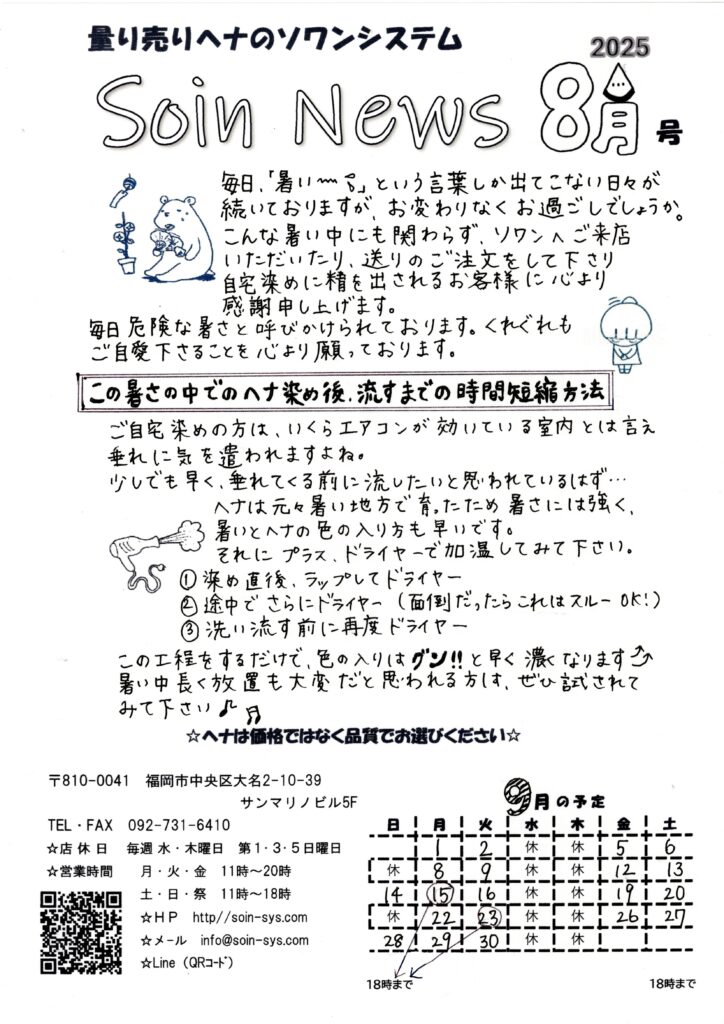 量り売りヘナのソワンシステム
2025
Soin News 8月号
毎日、「暑い〰。」という言葉しか出てこない日々が
続いておりますが、お変わりなくお過ごしでしょうか。
こんな暑い中にも関わらず、ソワンへご来店
いただいたり、送りのご注文をして下さり
自宅染めに精を出されるお客様に心より
感謝申し上げます。
毎日危険な暑さと呼びかけられております。くれぐれも
ご自愛下さることを心より願っております。
この暑さの中でのヘナ染め後、流すまでの時間短縮方法
ご自宅染めの方は、いくらエアコンが効いている室内とは言え
垂れに気を遣われますよね。
少しでも早く、垂れてくる前に流したいと思われているはず…
ヘナは元々暑い地方で育ったため暑さには強く、
暑いとヘナの色の入り方も早いです。
それにプラス、ドライヤーで加温してみて下さい。
①染め直後、ラップしてドライヤー
②途中でさらにドライヤー(面倒だったらこれはスルーOK!)
③洗い流す前に再度ドライヤー
この工程をするだけで、色の入りはグン!!と早く濃くなります⤴
暑い中長く放置も大変だと思われる方は、ぜひ試されて
みて下さい♪♬
☆ヘナは価格ではなく品質でお選びください☆
〒810-0041 福岡市中央区大名2-10-39
サンマリノビル5F
TEL・FAX 092-731-6410
☆店休日 毎週水・木曜日 第1・3・5日曜日
☆営業時間 月・火・金 11時～20時
土・日・祭 11時～18時
☆HP http//soin-sys.com
☆メール info@soin-sys.com
☆Line (QRコード)
9月の予定
日 月 火 水 木 金 土
1 2 休 休 5 6
休 8 9 休 休 12 13
14 15 16 休 休 19 20
休 22 23 休 休 26 27
28 29 30 休 休
18時まで 18時まで